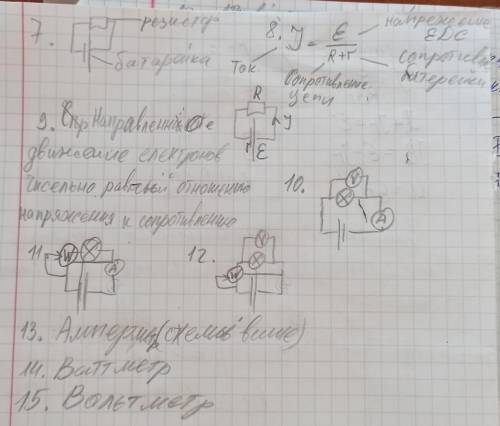 7. резистор
батарейка
8. J = Ɛ / R+r
напряжение
ЕДС
Ток
Сопротивление
цепи
сопротивл
батерейки
R
J
r Ɛ
9. Направленное
движение електронов
Чисельно равный отношению
напряжения к сопротивлению
10. V
A
11. W
A
12. V
W
13. Амперметр (схема выше)
14. Ваттметр
15. Вольтметр